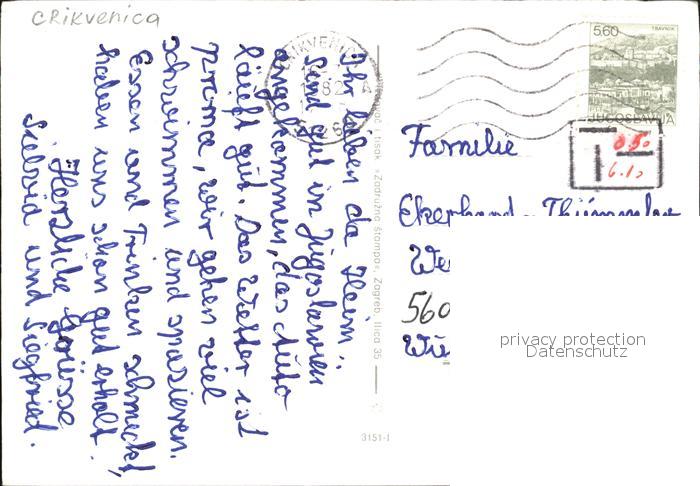 CRIKVENICA
Ihr lieben da Heim!
Sind gut in Jugoslavien
angekommen, das Auto
läuft gut. Das Wetter ist
prima, wir gehen viel
schwimmen und spazieren.
Essen und Trinken schmeckt,
haben uns schon gut erholt.
Herzliche Grüsse
und Siegfried.
CRIKVENICA
Tisak »Zadružna štampa«, Zagreb, Ilica 35
3151-
5.60
TRAVNIK
JUGOSLAVIJA
T
0.50
6.10
Familie
We
560
Wu
privacy protection
Datenschutz